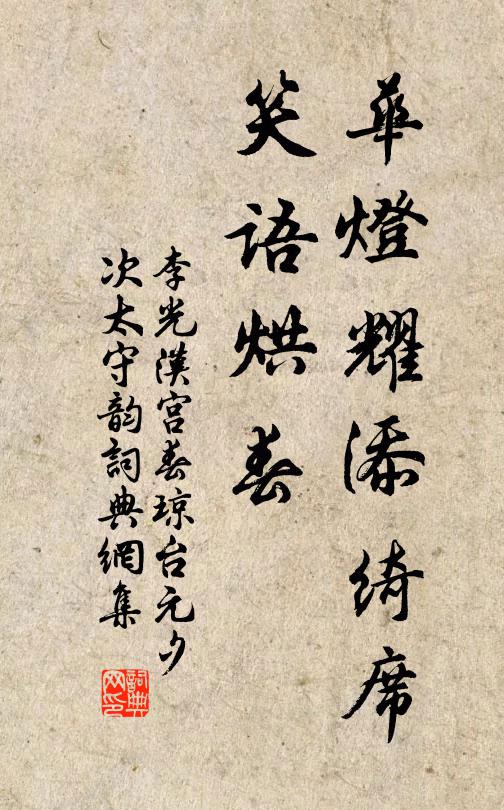 華燈耀添綺席
笑语烘春
李光漢宫春琼台元夕
次太守韵詞典網集
詞典网印